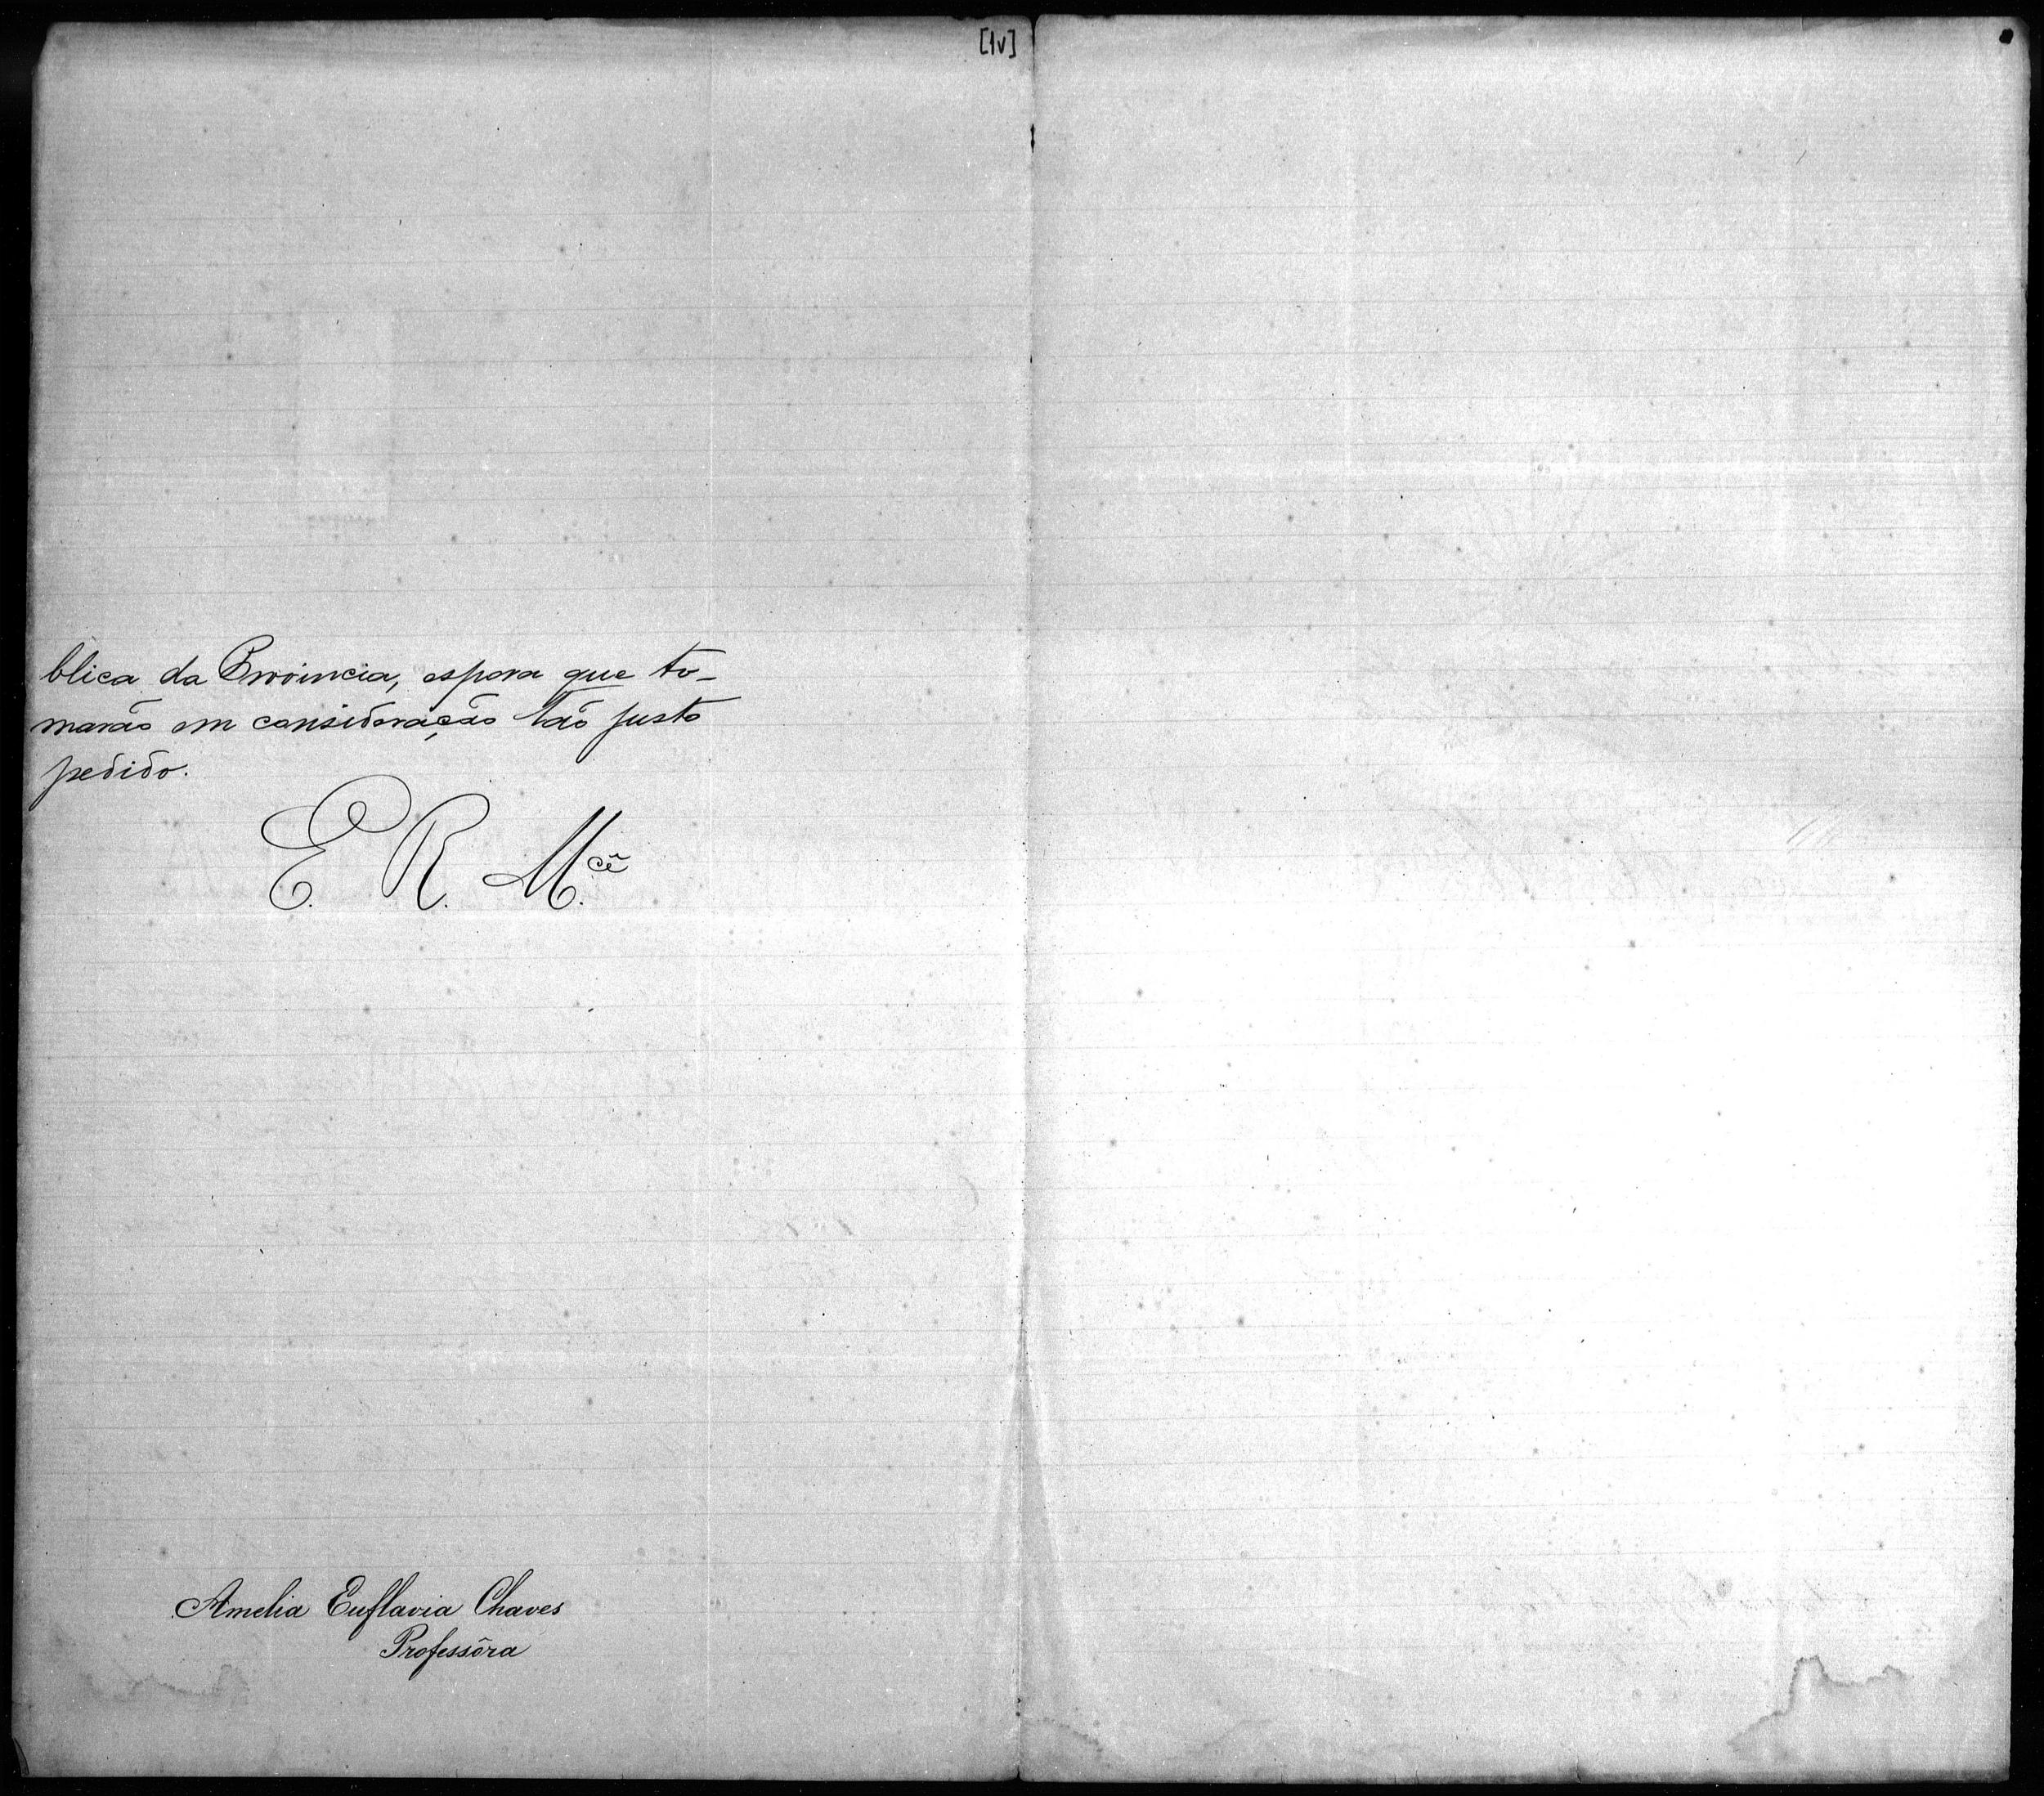 [1v]
blica da Provincia, espera que to-
marão em consideração tão justo
pedido.
E. R. M.cê
Amelia Euflavia Chaves
Professôra